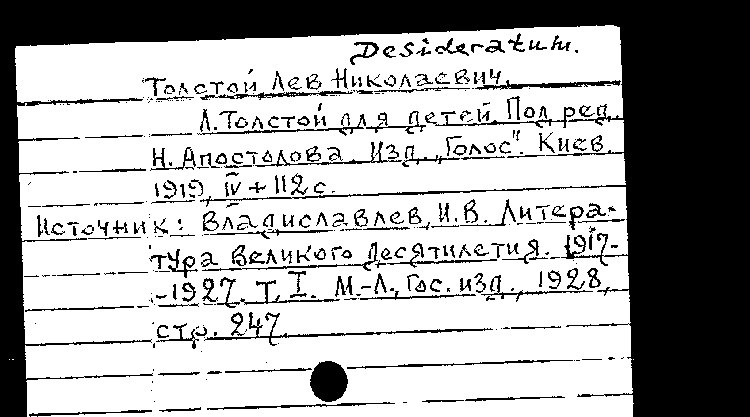 Desideratum.
Толстой, Лев Николаевич.
Л. Толстой для детей. Под ред.
Н. Апостолова. Изд. „Голос". Киев.
1919, IV + 112 с.
Источник: Владиславлев, И.В. Литера-
тура великого десятилетия. 1917-
-1927. Т. I. М.-Л., Гос. изд., 1928,
стр. 247.